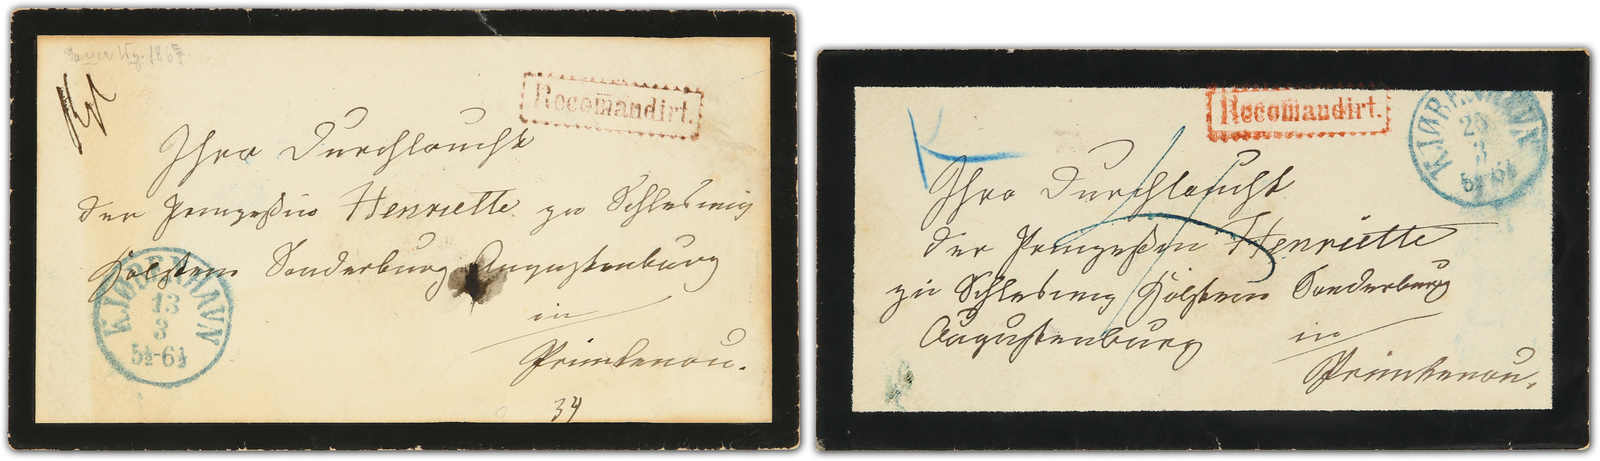 Recomandirt.
Ihro Durchlaucht
der Prinzeßin Henriette zu Schleswig
Holstein Sonderburg Augustenburg
in
Primkenau.
34
KJØBENHAVN
13
3
5½-6½
Recomandirt.
KJØBENHAVN
25
3
5½-6½
K
Ihro Durchlaucht
der Prinzeßin Henriette
zu Schleswig Holstein Sonderburg
Augustenburg in
Primkenau.